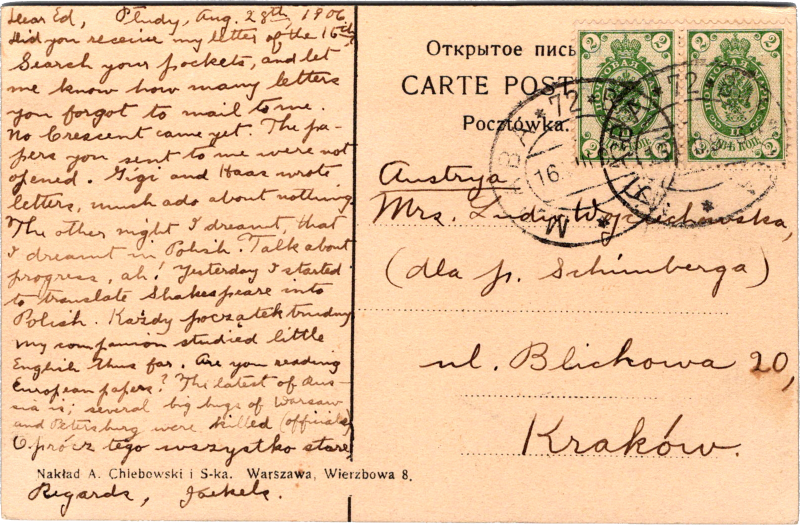 Dear Ed, Płudy, Aug. 28th, 1906.
Did you receive my letter of the 16th?
Search your pockets, and let
me know how many letters
you forgot to mail to me.
No Crescent came yet. The pa-
pers you sent to me were not
opened. Gigi and Haas wrote
letters, much ado about nothing.
The other night I dreamt, that
I dreamt in Polish. Talk about
progress, ah! Yesterday I started
to translate Shakespeare into
Polish. Każdy początek trudny
my companion studied little
English thus far. Are you reading
European papers? The latest of Rus-
sia is; several big bugs of Warsaw
and Petersburg were killed (officials)
Oprócz tego wszystko stare
Nakład A. Chlebowski i S-ka. Warszawa, Wierzbowa 8.
Regards, Jackels.
Открытое пись
CARTE POST
Pocztówka.
2 2
2 2
72
16
72
Austrya
Mrs.
(dla p. Schimberga)
ul. Blichowa 20,
Kraków.